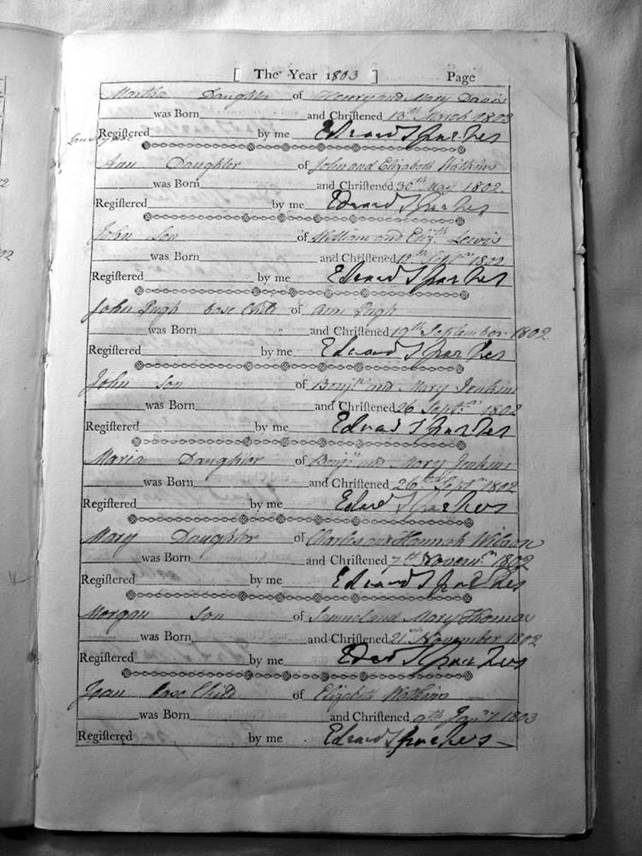 [ The Year 1803 ] Page
Martha Daughter of Henry and Mary Davis
was Born and Christened 13th March 1803
Registered by me Edward Sparkes
Ann Daughter of John and Elizabeth Watkins
was Born and Christened 30th May 1802
Registered by me Edward Sparkes
John Son of William and Elizth Lewis
was Born and Christened 1802
Registered by me Edward Sparkes
John Pugh base Child of Ann Pugh
was Born and Christened 19th September 1802
Registered by me Edward Sparkes
John Son of Benjn and Mary Jenkins
was Born and Christened 26 Septr 1802
Registered by me Edward Sparkes
Maria Daughter of Benjn and Mary Jenkins
was Born and Christened 26th Septr 1802
Registered by me Edwd Sparkes
Mary Daughter of Charles and Hannah Wilson
was Born and Christened 7th Novemr 1802
Registered by me Edward Sparkes
Morgan Son of Samuel and Mary Thomas
was Born and Christened 21st November 1802
Registered by me Edwd Sparkes
Joan base Child of Elizabeth Watkins
was Born and Christened 9th Jany 1803
Registered by me Edward Sparkes